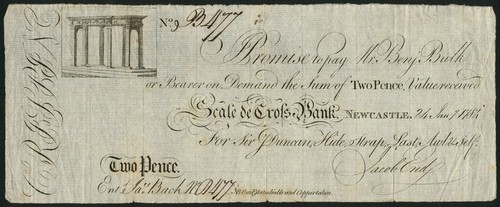 No. 9 B477
I Promise to pay Mr. Benj. Bulk
or Bearer on Demand the Sum of Two Pence, Value received
Scale de Cross Bank. Newcastle, 24 Jany 1788
For Sir J Duncan, Hide, Strap, Last, Awl & Self.
Jacob End
Two Pence.
Entd. Bach No B477